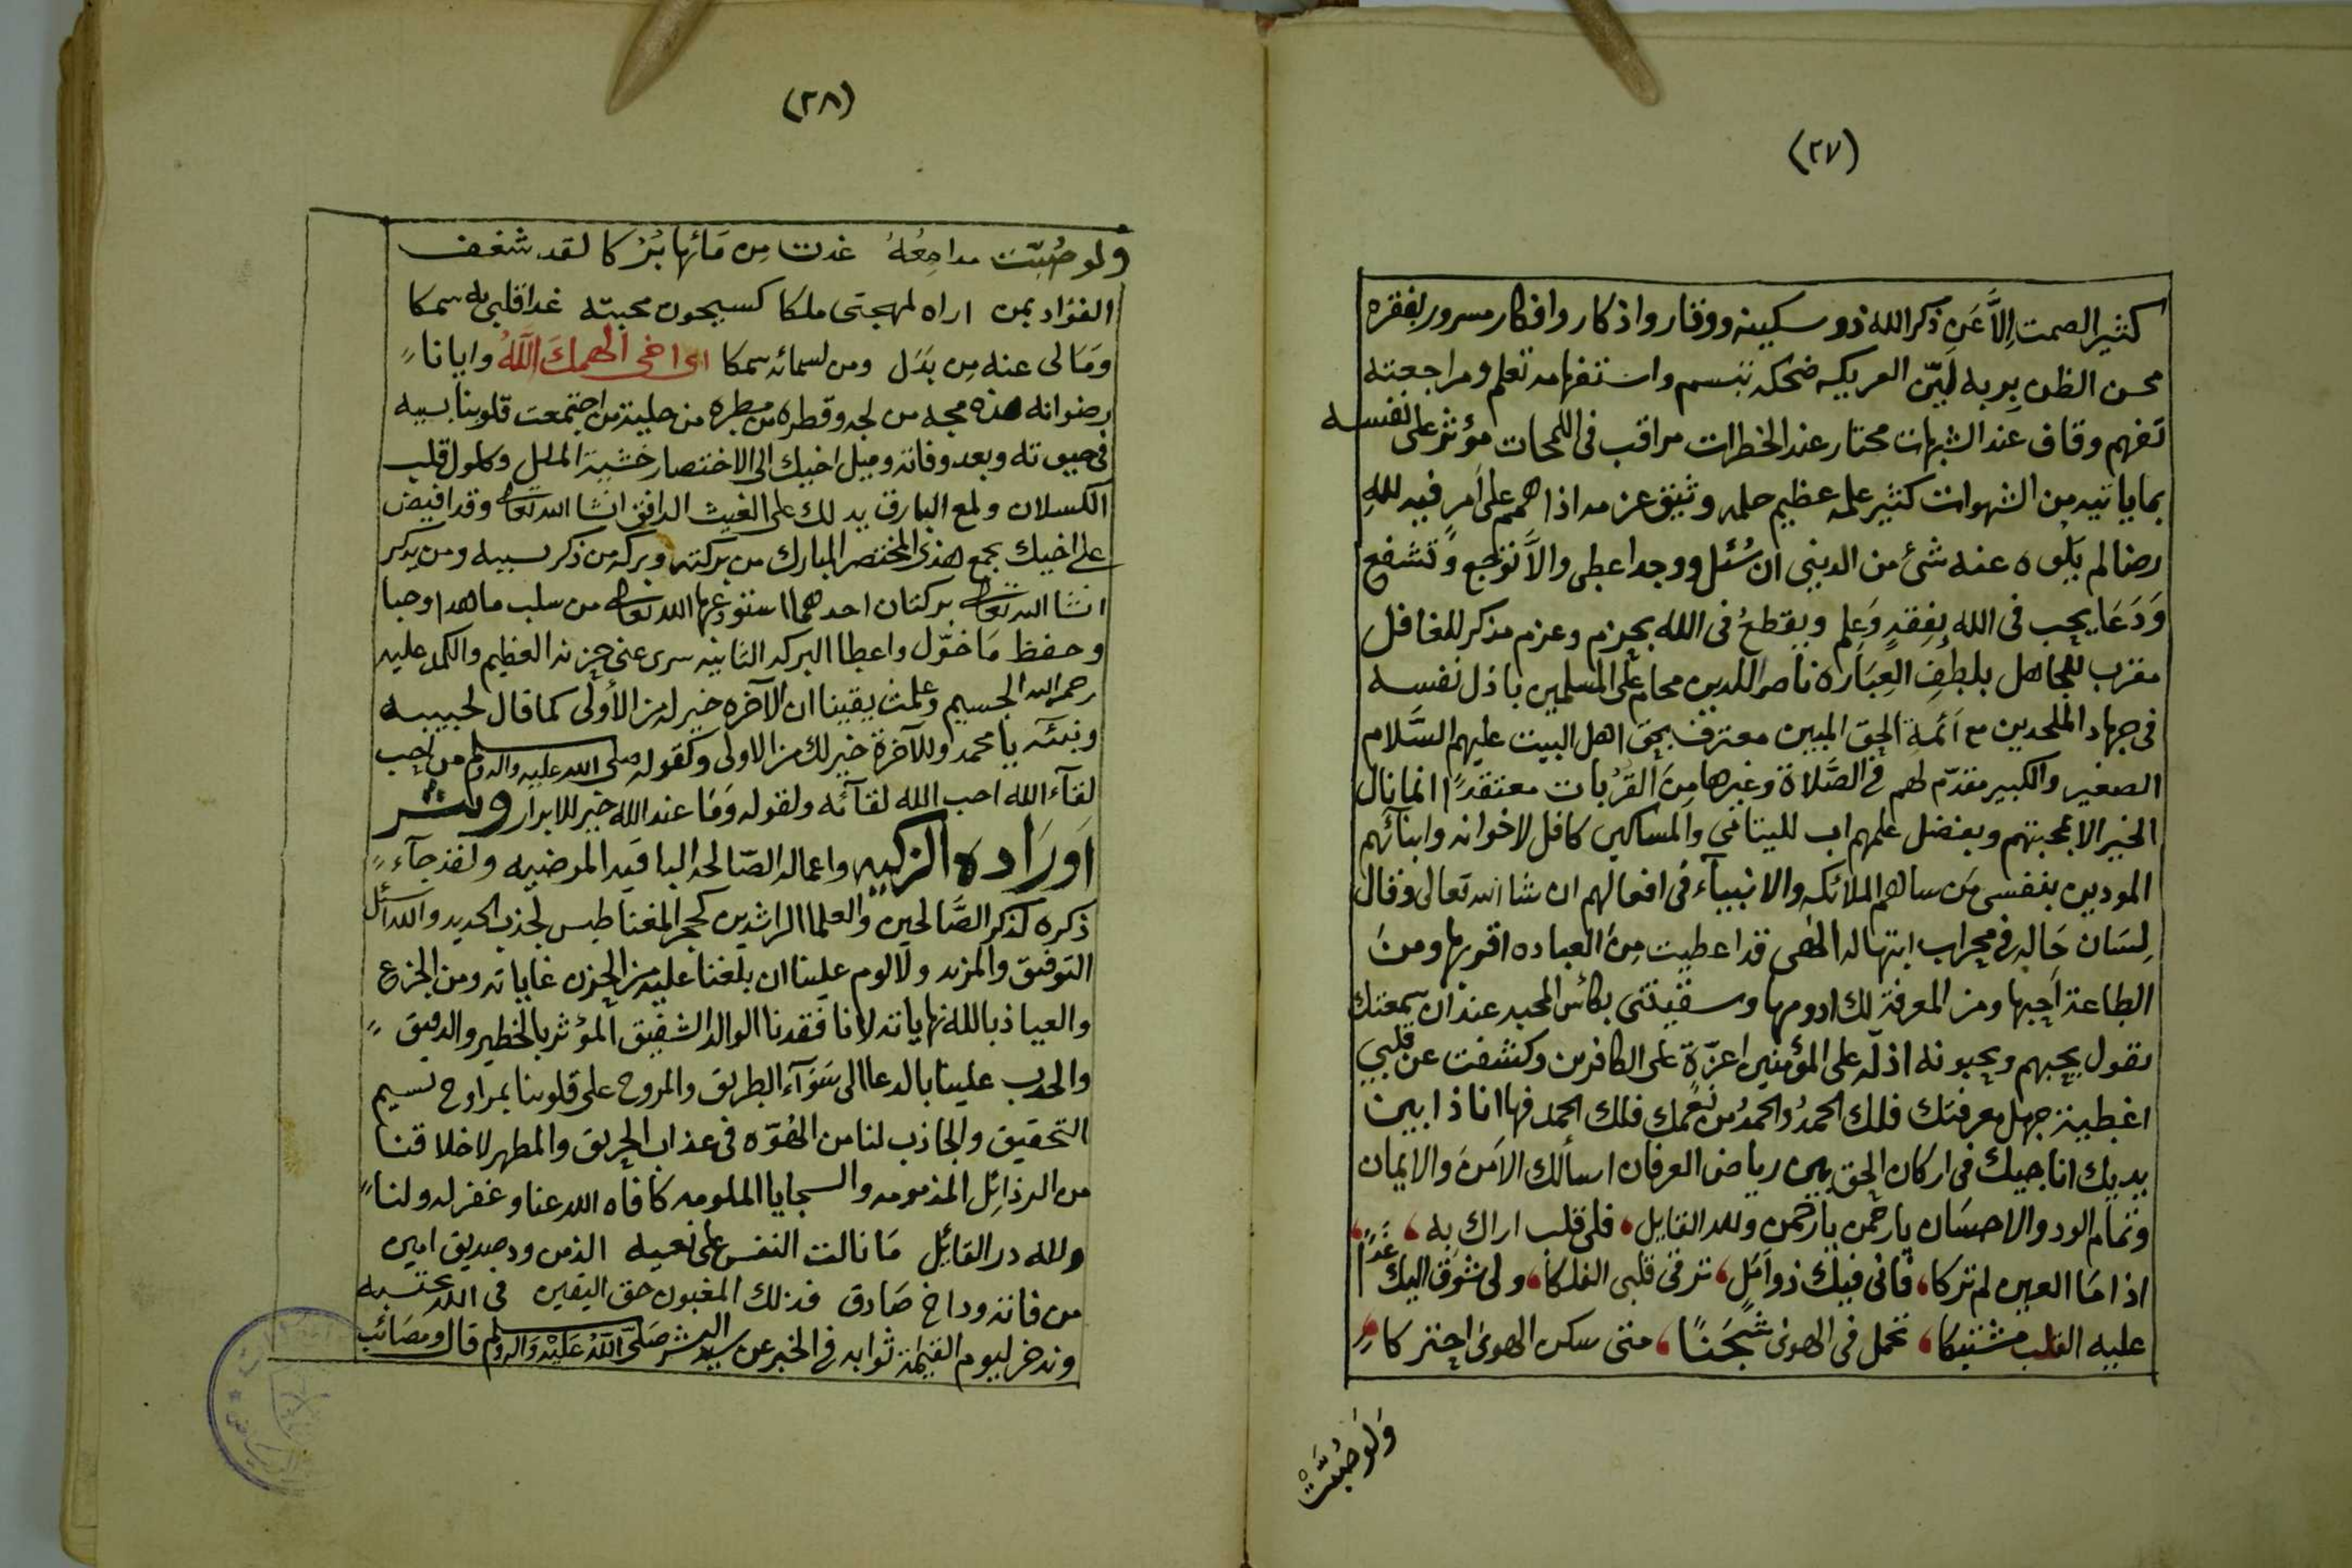 (٢٧)
كثير الصمت إلاَّ عَن ذكر الله ذو سكينه ووقار واذكار وافكار مسرور بفقره
محسن الظن بربه لَيّن العريكه ضحكه تبسم واستفهامه تعلم ومراجعته
تفهم وقاف عند الشبهات محتار عند الخطرات مراقب فى اللمحات مؤثر على نفسه
بما ياتيه من الشهوات كثير علمه عظيم حلمه وثيق عزمه اذا همم على أمر فيه لله
رضا لم يلوه عنه شئ من الدينى ان سُئل ووجد اعطى والاَّ توجع وتشفع
وَدَعَا يحب فى الله بِفِقهٍ وَعِلم ويقطعُ فى الله بحزم وعزم مذكر للغافل
مقرب للجاهل بلطفِ العِبَاره ناصر للدين محام على المسلمين باذل نفسه
فى جهاد الملحدين مع أئمة الحق المبين معترف بحق اهل البيت عليهم السَّلام
الصغير والكبير مقدّم لهم فى الصَّلاة وغيرها مِنَ القرُبات معتقدًا انما نال
الخير الا بمحبتهم وبفضل علمهم اب لليتامى والمساكين كافل لاخوانه وابنائهم
المودين بنفسى مَن ساهم الملائكه والانبيآء فى افعالهم ان شا الله تعالى وقال
لِسَان حَالِه فى محراب ابتهاله الهى قد اعطيت مِنَ العباده اقويها ومنَ
الطاعة احبها ومن المعرفة لك ادومها وسقيتنى بكأس المحبه عند ان سمعتك
تقول يحبهم ويحبونه اذلّه على المؤمنين اعزّة على الكافرين وكشفت عن قلبي
اغطية جهل معرفتك فلك الحمدُ والحمدُ من نعمك فلك الحمد فها انا ذا بين
يديك اناجيك فى اركان الحق بين رياض العرفان اسألك الأمنَ والايمان
وتمام الود والاحسَان يارحمن يارحمن ولله القايل فلى قلب اراك به غدًا
اذا مَا العين لم تركا فانى فيك ذو أمَل ترقى قلبى الفلكا ولى شوق اليك
عليه القلب مشتبكا تحمل فى الهوىٰ شجنًا متى سكن الهوىٰ احتركا
وَلَوصُبَّتْ
(٢٨)
ولو صُبَّت مدامِعُهُ غدت مِن مَائها بُرَكا لقد شغف
الفؤاد بمن اراه لمهجتى ملكا كسيحون محبته غدا قلبى به سمكا
وَمَا لى عنه مِن بَدَل ومن لسمائه سمكا اى اخى ألهمكَ اللَّهُ وايانا
رضوانه هذه مجه من لجه وقطره من مطره من حلية من اجتمعت قلوبنا بسببه
فى حيوته وبعد وفاته وميل اخيك الى الاختصار خشية الملل وكلول قلب
الكسلان ولمع البارق يدلك على الغيث الدافق انشا الله تعالى وقد افيض
على اخيك بجمع هذى المختصر المبارك من بركته وبركه من ذكر بسببه ومن يذكر
انشا الله تعالى بركتان احدهما استودعها الله تعالى من سلب ما هدا وحبا
وحفظ مَا خوّل واعطا البركه الثانيه سرى عنى حزنه العظيم والكمد عليه
رحمه الله الجسيم وعلمت يقينا ان الآخره خير له من الأولى كما قال لحبيبه
ونبيّه يا محمد وللآخرة خير لك من الاولى وكقوله صلى الله عليه واله وسلم من احب
لقآء الله احب الله لقآئه ولقوله وَمَا عند الله خير للابرار ونشر
أورَاده الزكيه واعماله الصّالحه الباقيه المرضيه ولقد جآء
ذكره كذكر الصَّالحين والعلما الراشدين كحجر المغناطيس لجذب الحديد والله اسئل
التوفيق والمزيد ولا لوم علينا ان بلغنا عليه من الحزن غاياته ومن الجزع
والعياذ بالله نهاياته لانا فقدنا الوالد الشفيق المؤثر بالخطير والدقيق
والحدب علينا بالدعا الى سَوَآء الطريق والمروح على قلوبنا بمراوح نسيم
التحقيق والجاذب لنا من الهُوّه فى عذاب الحريق والمطهر لاخلاقنا
من الرذائِل المذمومه والسجايا الملومه كافاه الله عنا وغفر له ولنا
ولله در القائِل مَا نالت النفس على نعيه الذ من ود صديق امين
من فاته ود اخ صَادق فذلك المغبون حق اليقين فى الله نحتسبه
وندخر ليوم القيمة ثوابه فى الخبر عن سيد البشر صَلَّى اللَّهُ عَلَيْهِ وَاله وسلم قال ومَصَائب